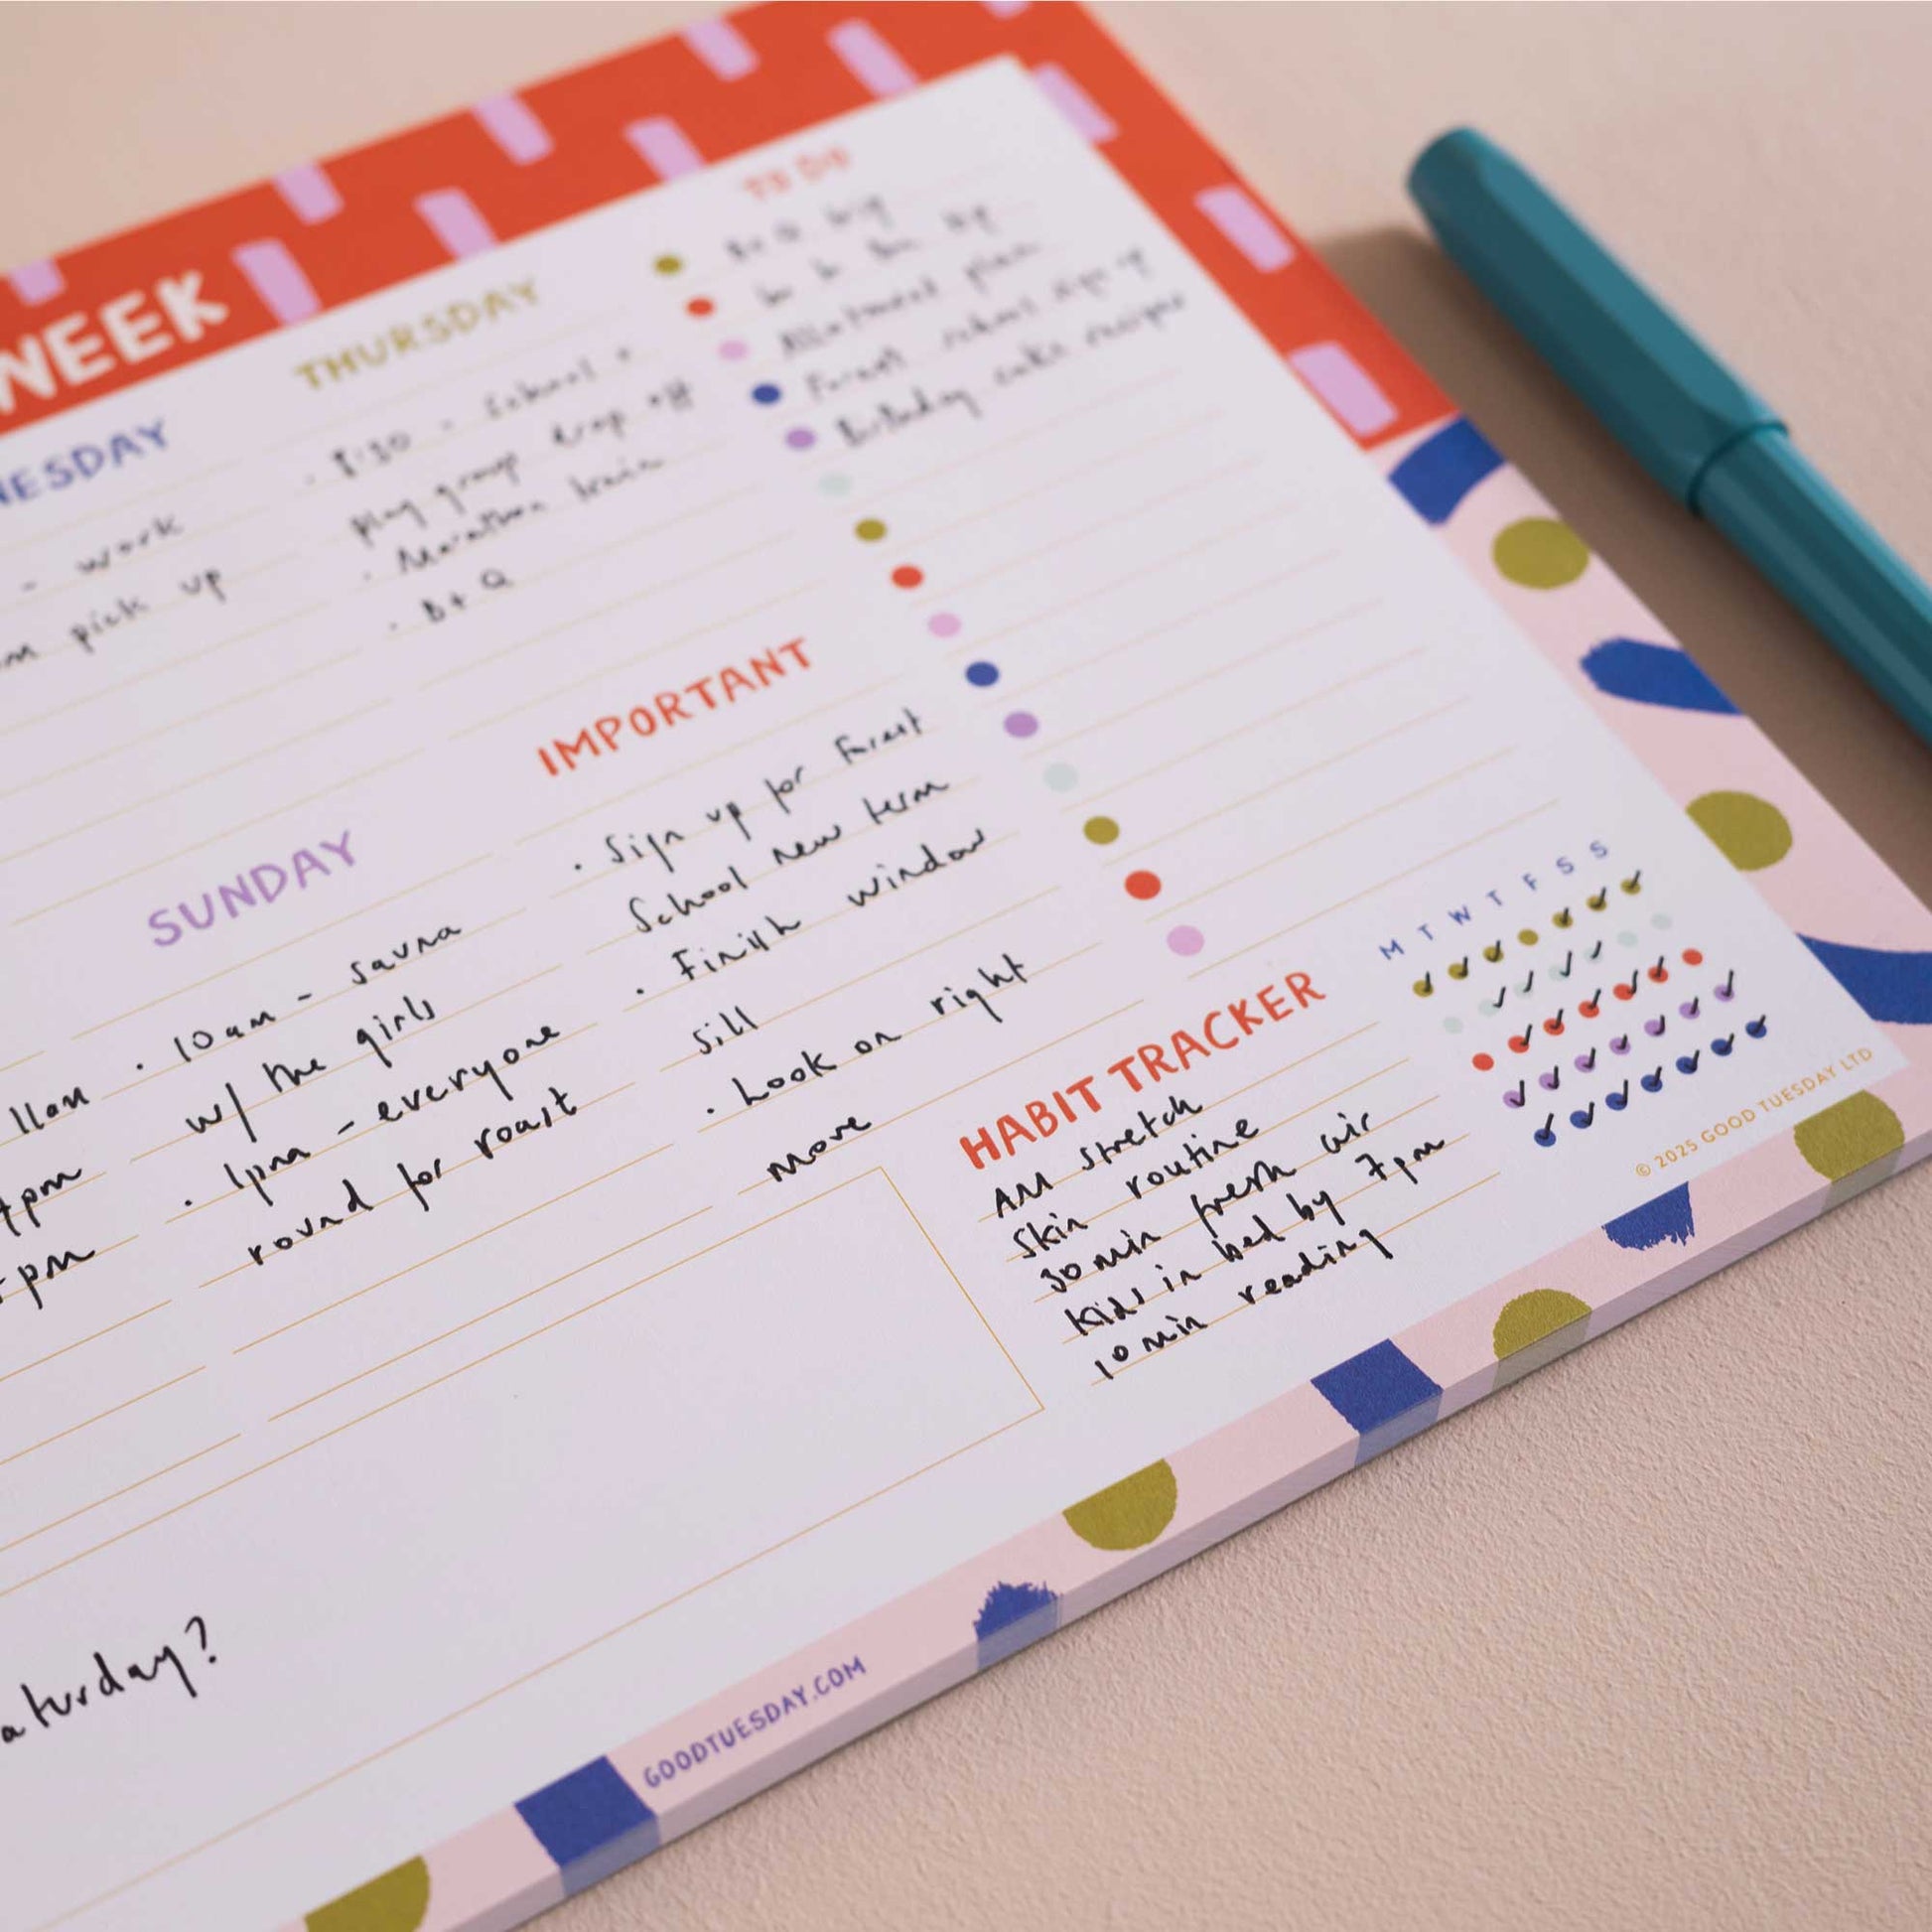 WEEK
NESDAY
- work
pick up
THURSDAY
· 8:30 - School +
play group drop off
· Marathon train
· B+Q
TO DO
Allotment plan
Forest school sign up
Birthday cake recipes
11am
7pm
pm
SUNDAY
· 10am - sauna
w/ the girls
· 1pm - everyone
round for roast
IMPORTANT
· Sign up for Forest
School new term
· Finish window
sill
· Look on right
move
HABIT TRACKER
M T W T F S S
AM stretch
Skin routine
30 min fresh air
Kids in bed by 7pm
10 min reading
© 2025 GOOD TUESDAY LTD
aturday?
GOODTUESDAY.COM